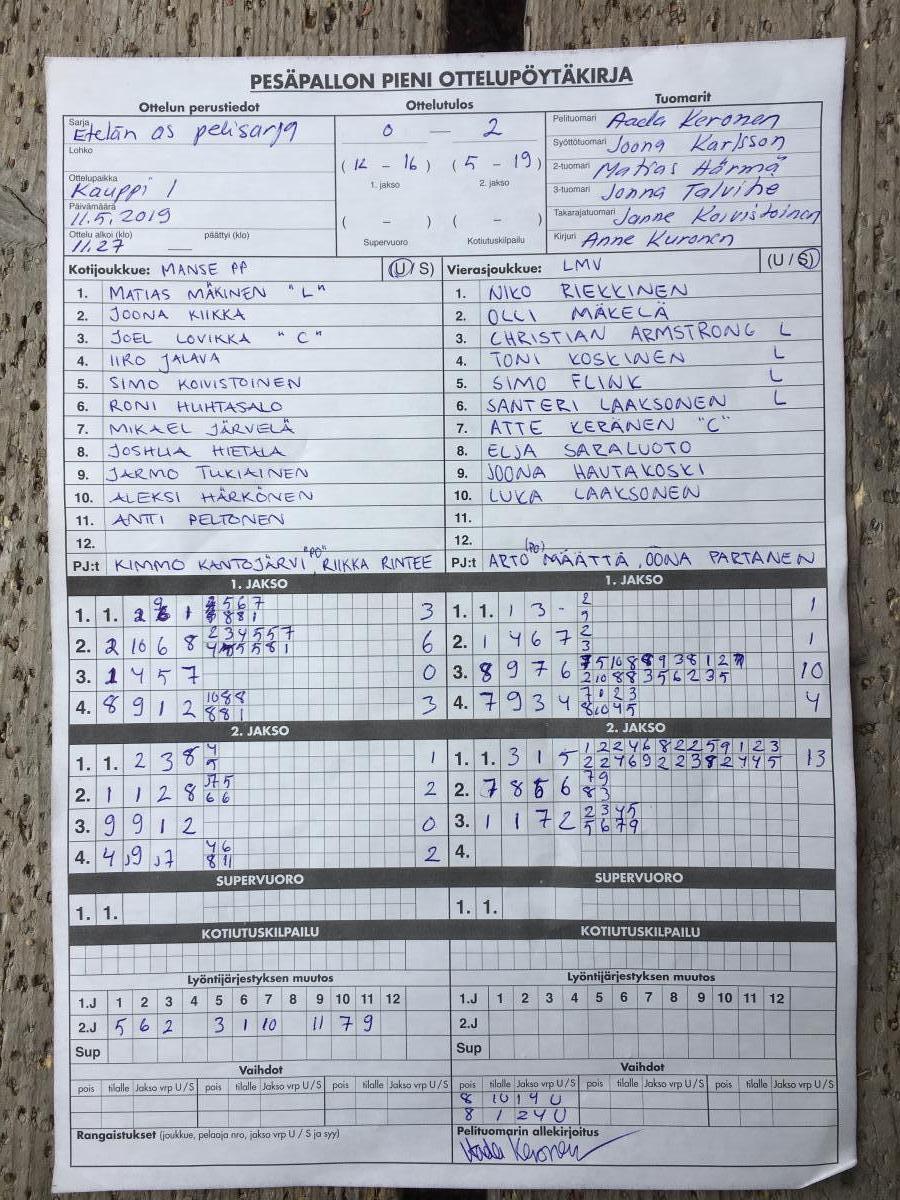 PESÄPALLON PIENI OTTELUPÖYTÄKIRJA
Ottelun perustiedot
Ottelutulos
Tuomarit
Sarja Etelän as pelisarja
Lohko
Ottelupaikka Kauppi 1
Päivämäärä 11.5.2019
Ottelu alkoi (klo) päättyi (klo)
11.27
0 — 2
(12 - 16) (5 - 19)
1. jakso 2. jakso
( - ) ( - )
Supervuoro Kotiutuskilpailu
Pelituomari Aada Keronen
Syöttötuomari Joona Karlsson
2-tuomari Matias Härmä
3-tuomari Jonna Talvitie
Takarajatuomari Janne Koivistoinen
Kirjuri Anne Kuronen
Kotijoukkue: MANSE PP (U / S)
1. MATIAS MÄKINEN "L"
2. JOONA KIIKKA
3. JOEL LOVIKKA "C"
4. IIRO JALAVA
5. SIMO KOIVISTOINEN
6. RONI HUHTASALO
7. MIKAEL JÄRVELÄ
8. JOSHUA HIETALA
9. JARMO TUKIAINEN
10. ALEKSI HÄRKÖNEN
11. ANTTI PELTONEN
12.
PJ:t KIMMO KANTOJÄRVI "PO", RIIKKA RINTEE
Vierasjoukkue: LMV (U / S)
1. NIKO RIEKKINEN
2. OLLI MÄKELÄ
3. CHRISTIAN ARMSTRONG L
4. TONI KOSKINEN L
5. SIMO FLINK L
6. SANTERI LAAKSONEN L
7. ATTE KERÄNEN "C"
8. ELJA SARALUOTO
9. JOONA HAUTAKOSKI
10. LUKA LAAKSONEN
11.
12.
PJ:t ARTO (PO) MÄÄTTÄ, OONA PARTANEN
1. JAKSO
1. 1. 3
2. 2 10 6 8 6
3. 1 4 5 7 0
4. 8 9 1 2 10 8 8 3
8 8 1
2. JAKSO
1. 1. 2 3 8 4 1
5
2. 1 1 2 8 2
6 6
3. 9 9 1 2 0
4. 4, 9, 7 4 6 2
8 11
SUPERVUORO
1. 1.
KOTIUTUSKILPAILU
1. JAKSO
1. 1. 1 3 - 2 1
2. 1 4 6 7 2 1
3
3. 8 9 7 6 10
4. 7 9 3 4 4
2. JAKSO
1. 1. 3 1 5 1 2 2 4 6 8 2 2 5 9 1 2 3 13
2 2 4 6 9 2 2 3 8 2 4 4 5
2. 7 8 5 6 7 9
8 3
3. 1 1 7 2 2 3 4 5
5 6 7 9
4.
SUPERVUORO
1. 1.
KOTIUTUSKILPAILU
Lyöntijärjestyksen muutos
1.J 1 2 3 4 5 6 7 8 9 10 11 12
2.J 5 6 2 3 1 10 11 7 9
Sup
Lyöntijärjestyksen muutos
1.J 1 2 3 4 5 6 7 8 9 10 11 12
2.J
Sup
Vaihdot
pois tilalle Jakso vrp U / S pois tilalle Jakso vrp U / S pois tilalle Jakso vrp U / S
Vaihdot
pois tilalle Jakso vrp U / S pois tilalle Jakso vrp U / S pois tilalle Jakso vrp U / S
8 10 1 4 U
8 1 2 4 U
Rangaistukset (joukkue, pelaaja nro, jakso vrp U / S ja syy)
Pelituomarin allekirjoitus
Aada Keronen